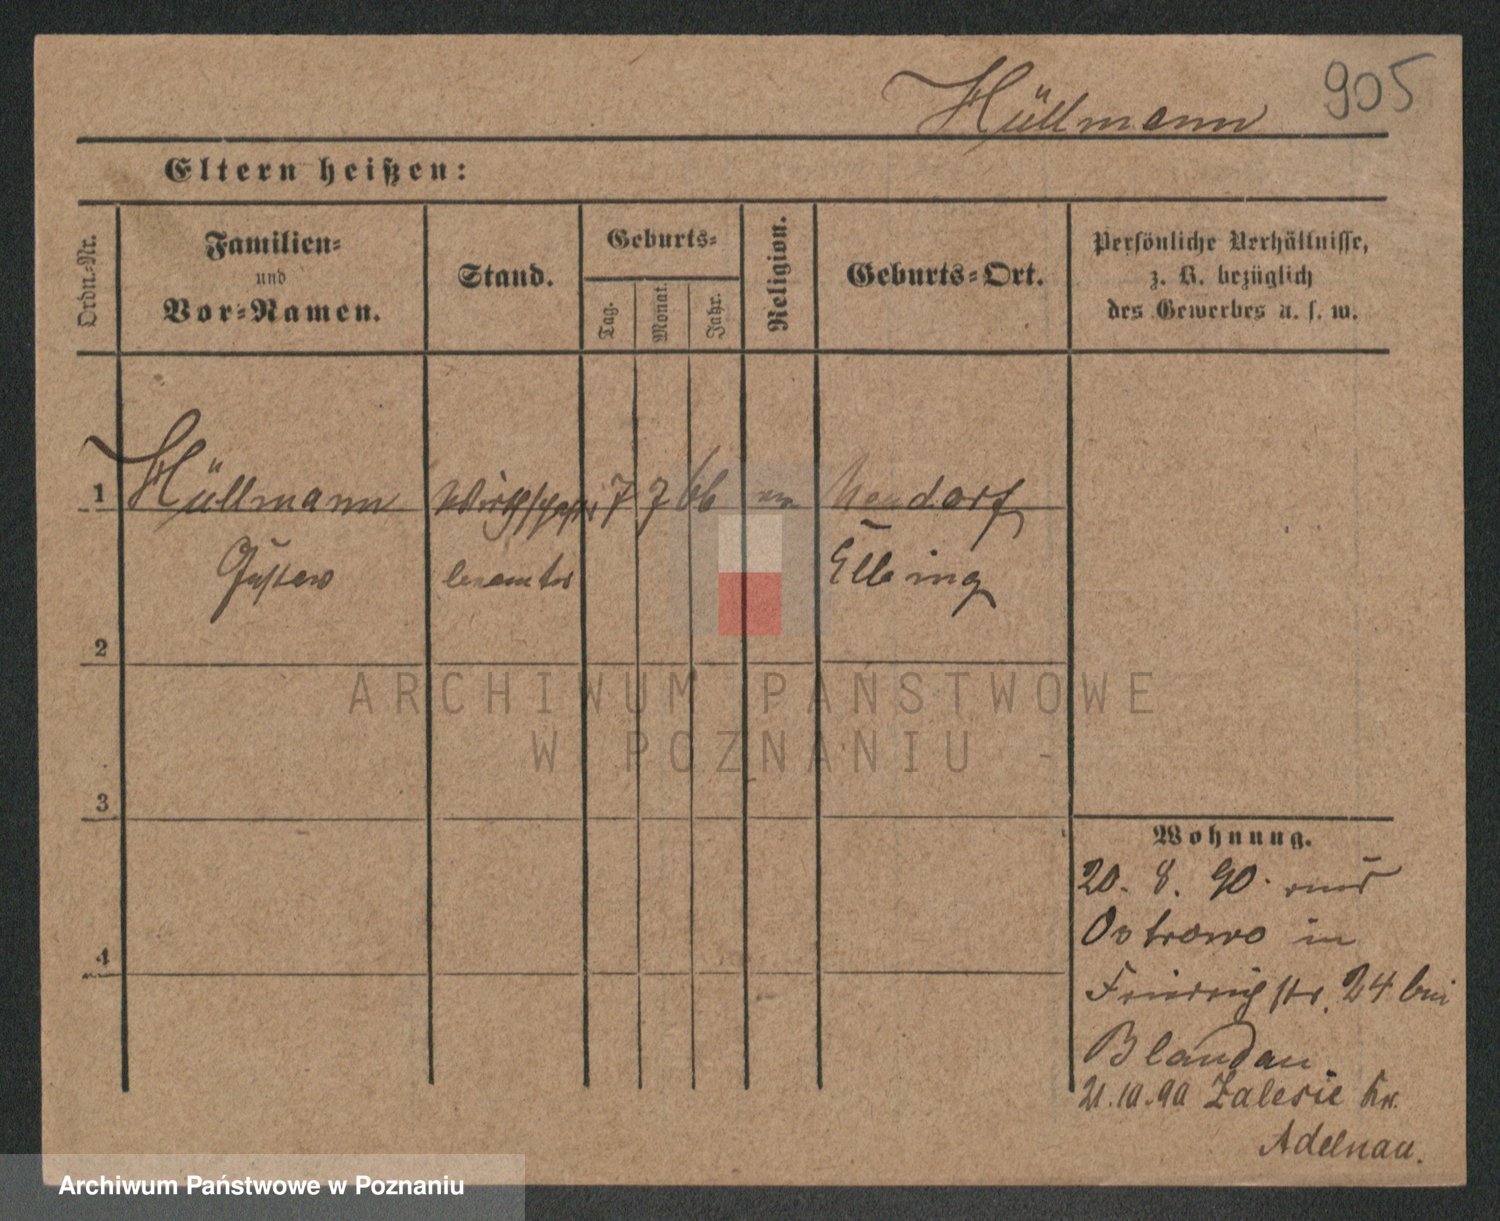 Hüllmann 905
Eltern heißen:
Ordn.-Nr.
Familien-
und
Vor-Namen.
Stand.
Geburts-
Tag.
Monat.
Jahr.
Religion.
Geburts-Ort.
Persönliche Verhältnisse,
z. B. bezüglich
des Gewerbes u. s. w.
1 Hüllmann Wirthschafts 7 7 66 ev Neudorf
Gustav beamter Elbing
2
3
4
Wohnung.
20. 8. 90. aus
Ostrowo in
Friedrichstr. 24 bei
Blandau
21.10.90 Zalesie Kr.
Adelnau.
ARCHIWUM PAŃSTWOWE
W POZNANIU -
Archiwum Państwowe w Poznaniu